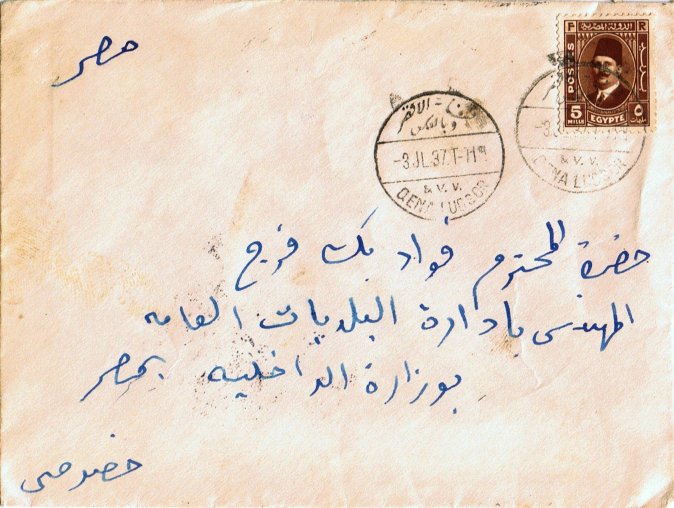 مصر
F R
الدولة المصرية
POSTES
5
MILLS
EGYPTE
٥
مليمات
قنا - الاقصر
وبالعكس
-3 JL.37.T-711
& V. V.
QENA LUXSOR
-3 JL.37.T-
& V. V.
QENA LUXSOR
حضرة المحترم فواد بك فرج
المهندس بادارة البلديات العامه
بوزارة الداخليه بمصر
خصوصى